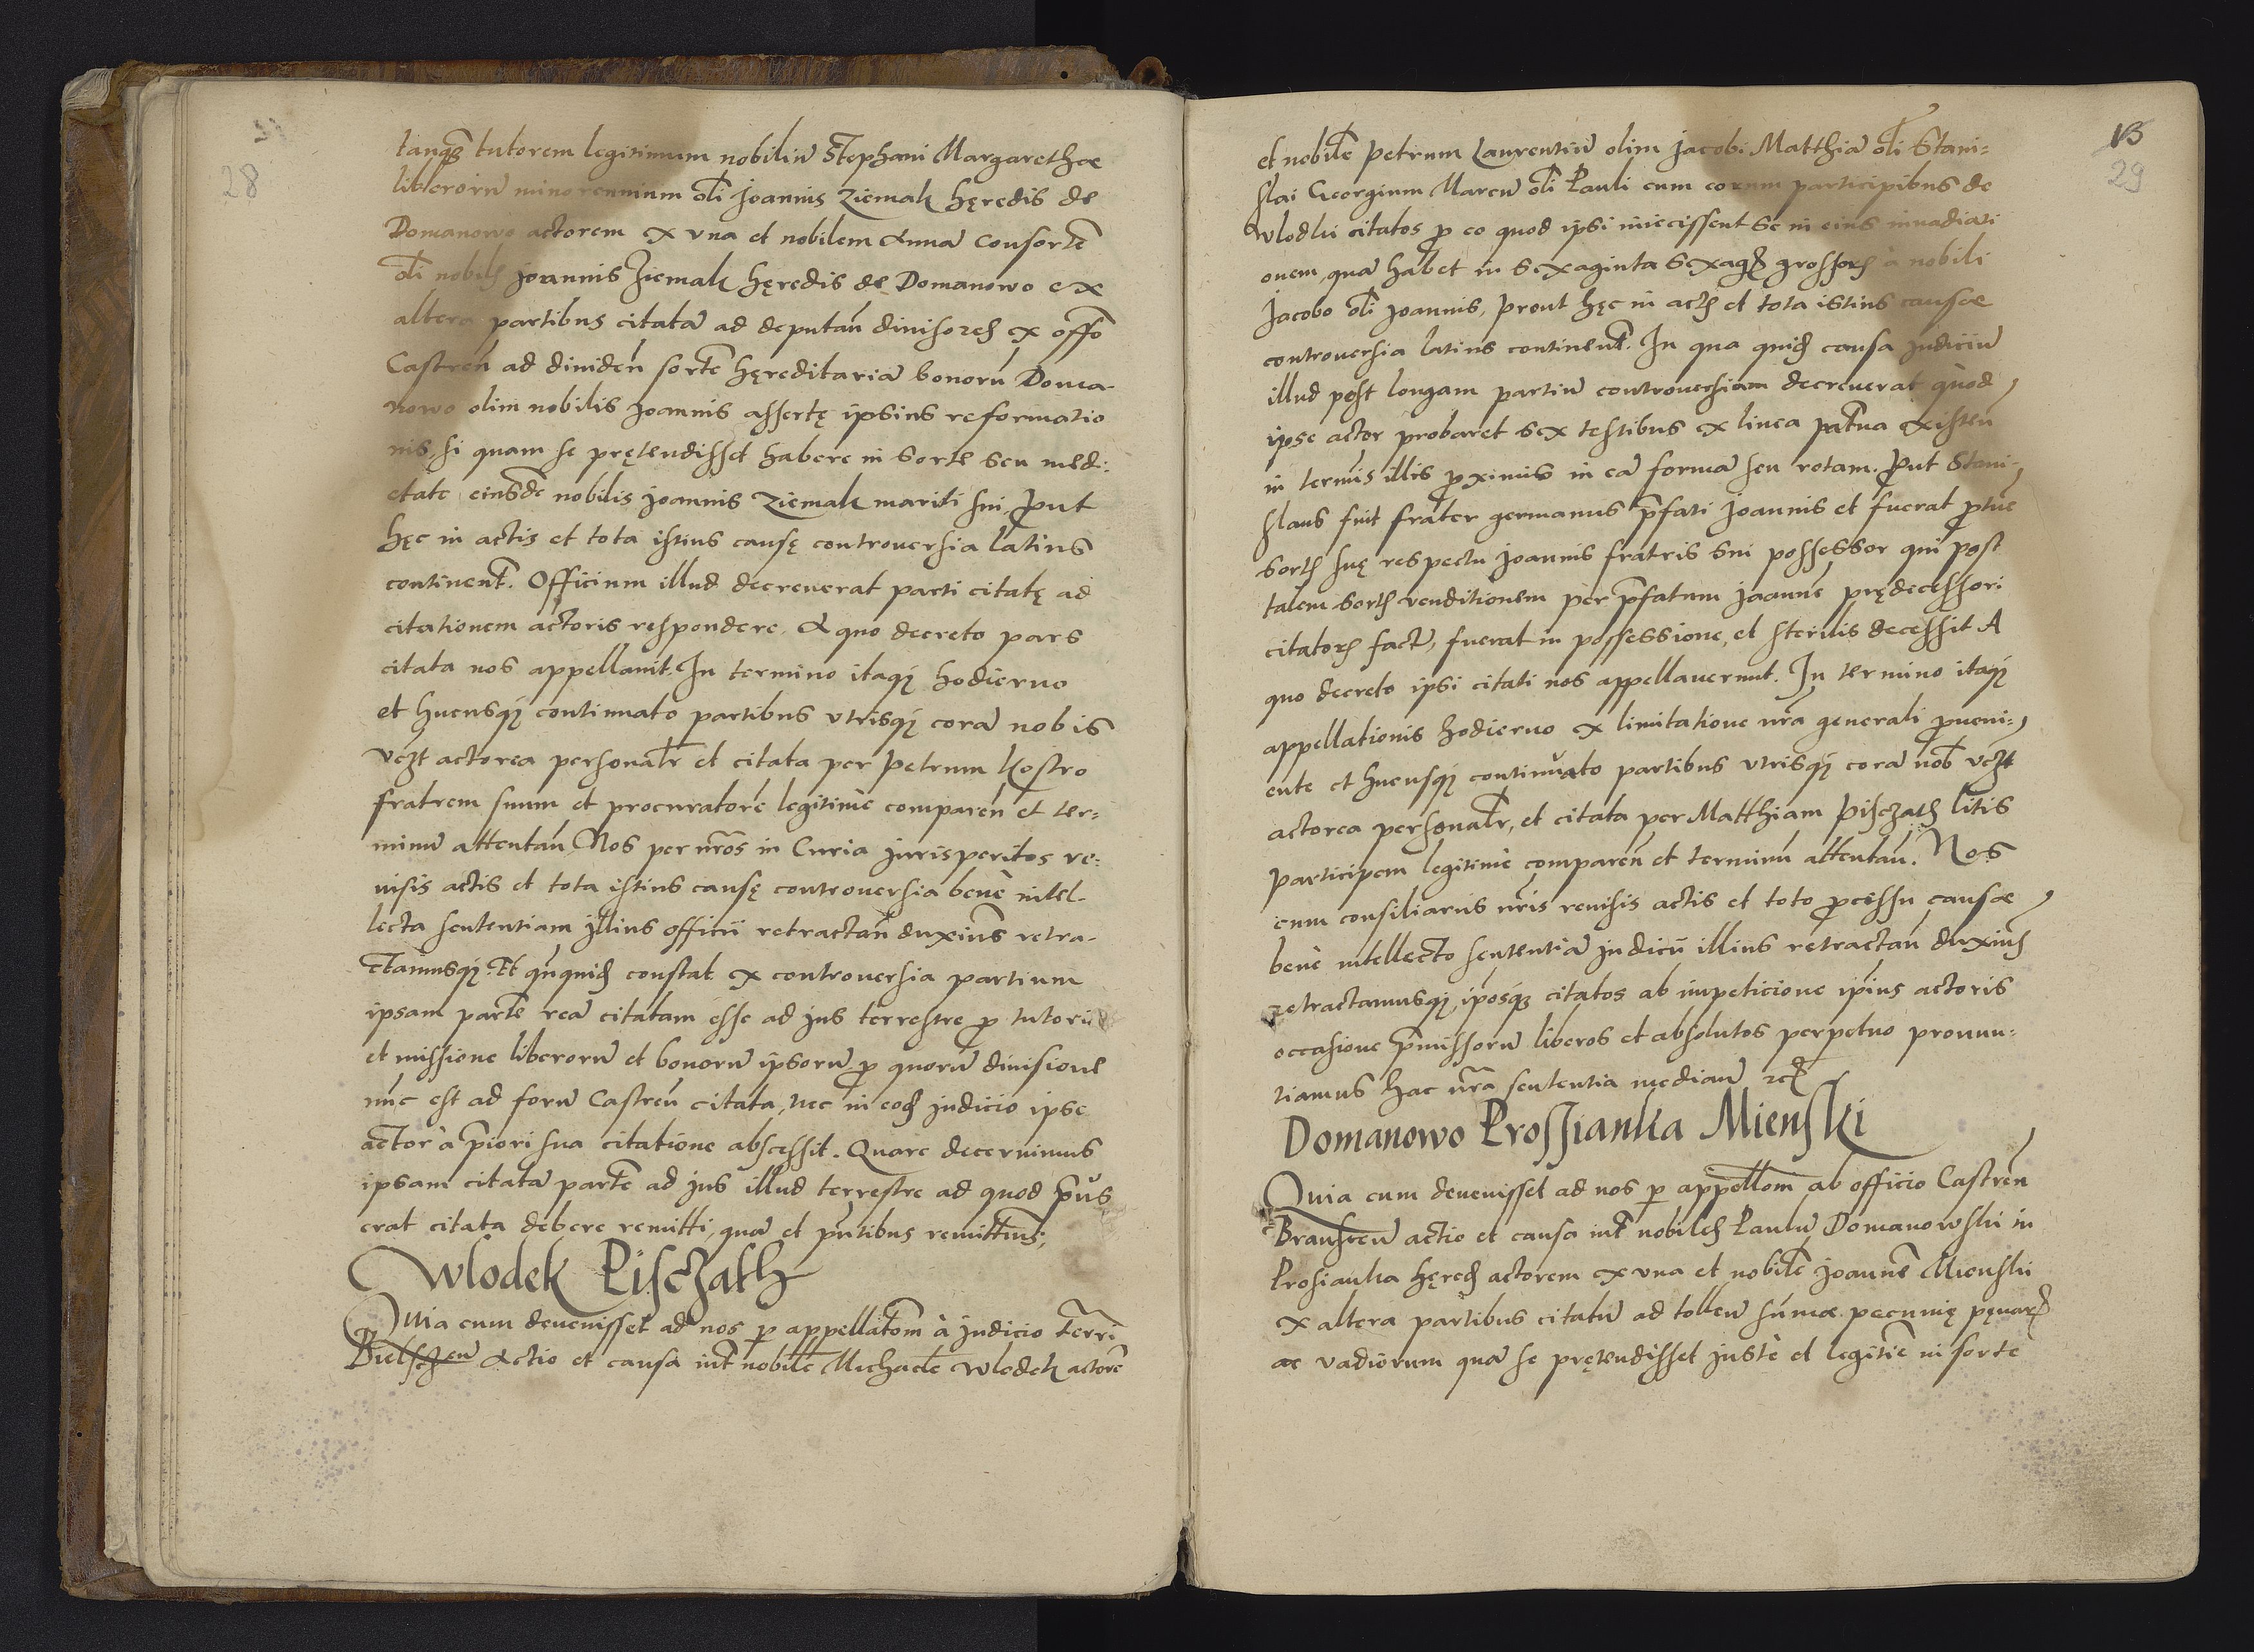 28
tanq̃ tutorem legitimum nobiliū Stephani Margarethae
liberorū minorennium oƚi Joannis Ziemak hęredis de
Domanowo actorem ex vna et nobilem Annā Consortē
oƚi nobilis Joannis Ziemak hęredis de Domanowo ex
altera partibus citatā ad deputañ diuisores ex offō
Castreñ ad diuideñ sortē hęreditariā bonorū Doma-
nowo olim nobilis Joannis assertę ipsius reformatio
nis, si quam se prętendisset habere in sorte seu medi:
etate eiusdē nobilis Joannis Ziemak mariti sui, Put
hęc in actis et tota istius causę controuersia latius
continent̃. Officium illud decreuerat parti citatę ad
citationem actoris respondere. A quo decreto pars
citata nos appellauit. In termino itaqꝫ hodierno
et hucusqꝫ continuato partibus vtrisqꝫ corā nobis
vczt actorea personalr̃ et citata per Petrum Kostro
fratrem suum et procuratorē legitimè compareñ et ter:
minū attentañ, Nos per nr̃os in Curia Jurisperitos re:
uisis actis et tota istius causę controuersia benè intel-
lecta sententiam illius officii retractañ duximꝰ retra-
ctamusqꝫ. Et qñquidē constat ex controuersia partium
ipsam partē reā citatam esse ad Jus terrestre ꝓ tutori
et missione liberorū et bonorū ipsorū ꝓ quorū diuisione
nūc est ad forū Castreñ citata, nec in eodē Judicio ipse
actor à p̃iori sua citatione abscessit. Quare decernimus
ipsam citatā partē ad Jus illud terrestre ad quod p̃us
erat citata debere remitti, quā et p̃ntibus remittimꝰ.
Wlodek Pisczath
Quia cum deuenisset ad nos ꝑ appellatōm à Judicio terr̃i
Bielsczeñ Actio et causa int̃ nobilē Michaelē Wlodek actorē
13
29
et nobilē Petrum Laurentiū olim Jacobi Matthiā oƚi Stani:
slai Georgium Marcū oƚi Pauli cum eorum participibus de
Wlodki citatos ꝓ eo quod ipsi iniecissent se in eius inuadiati
onem, quā habet in sexaginta sexagꝫ grossorꝫ à nobili
Jacobo oƚi Joannis, prout hęc in actꝫ et tota istius causae
controuersia latius continent̃. In qua quidē causa Judiciū
illud post longam partiū controuersiam decreuerat quòd
ipse actor probaret sex testibus ex linea pat̃na existeñ
in terminis illis ꝓximis in eā formā seu rotam. Put Stani-
slaus fuit frater germanus p̃fati Joannis et fuerat ꝓtunc
sortꝫ suę respectu Joannis fratris sui possessor qui post
talem sortꝫ venditionem per p̃fatum Joannē prędecessori
citatorꝫ factā, fuerat in possessione, et sterilis decessit A
quo decreto ipsi citati nos appellauerunt. In termino itaqꝫ
appellationis hodierno ex limitatione nr̃a generali ꝓueni:
ente et hucusqꝫ continuato partibus vtrisqꝫ corā nob̃ vczt
actorea personalr̃, et citata per Matthiam Pisczath litis
participem legitimè compareñ et terminū attentañ. Nos
cum consiliariis nr̃is reuisis actis et toto ꝓcessu causae
benè intellecto sententiā Judicii illius retractañ duximꝰ
retractamusqꝫ, ip̃osqꝫ citatos ab impeticione ip̃ius actoris
occasione p̃missorū liberos et absolutos perpetuo pronun:
tiamus hac nr̃a sententia mediañ ꝛcꝫ
Domanowo Prossianka Mienski
Quia cum deuenisset ad nos ꝑ appellōm ab officio Castreñ
Bransceñ actio et causa int̃ nobiles Paulū Domanowski in
Prosianka hęredē actorem ex vna et nobilē Joannē Mienski
ex altera partibus citatū ad tolleñ sum̃ae pecunię pęnarꝫ
ac vadiorum quā se prętendisset justè et legitimè in sorte